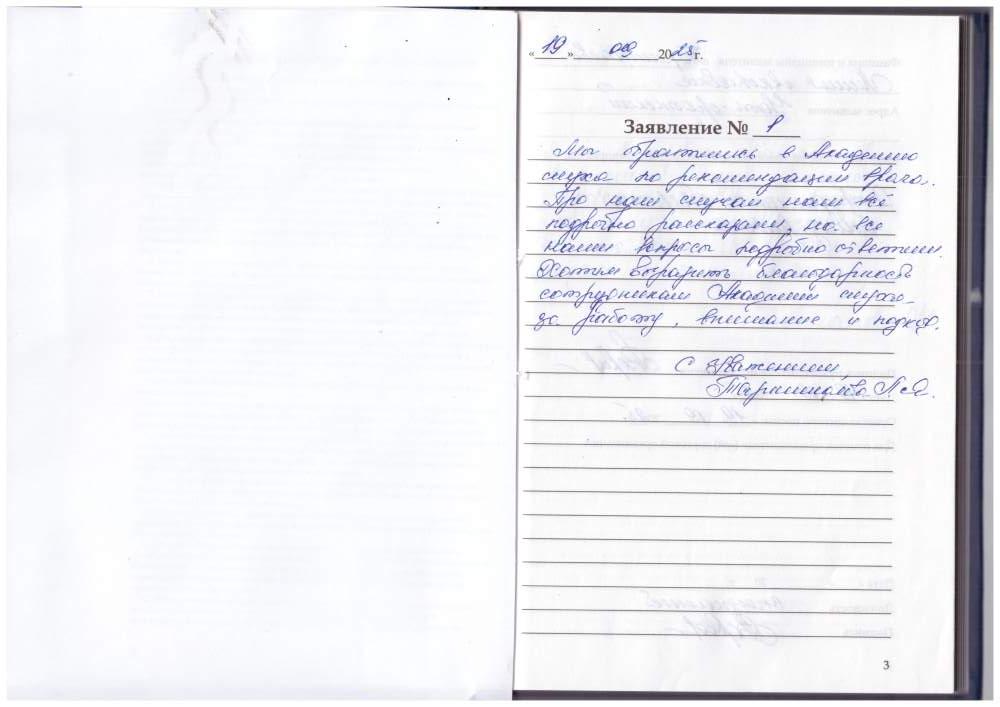 «19» 09 2025 г.
Заявление № 1
Мы обратились в Академию
слуха по рекомендации врача.
Про наш случай нам всё
подробно рассказали, на все
наши вопросы подробно ответили.
Хотим выразить благодарность
сотрудникам Академии слуха
за работу, внимание и подход.
С уважением,
Л.А.
3